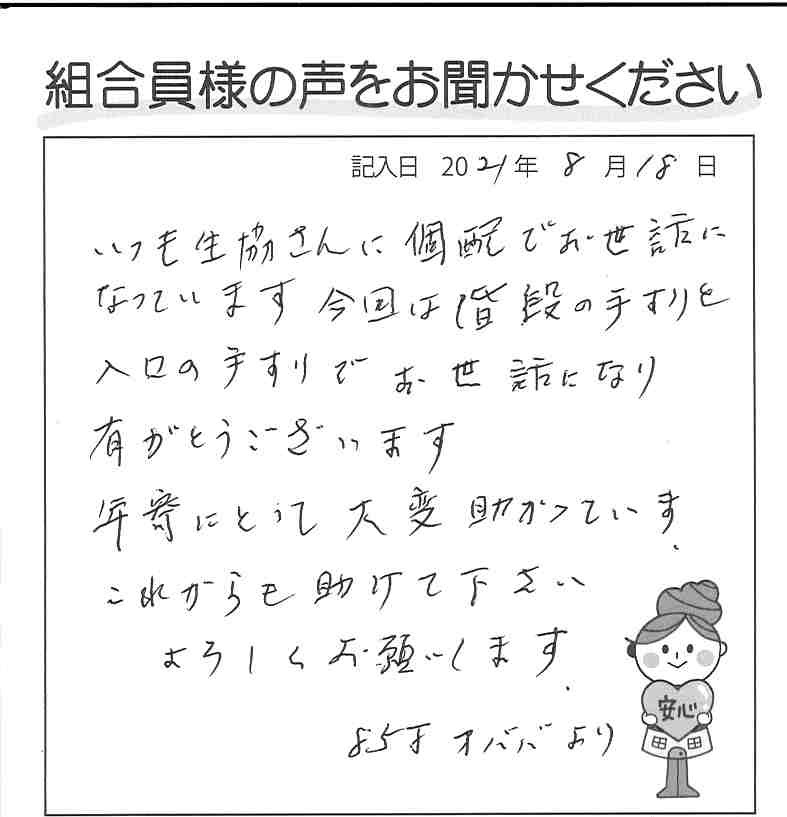 組合員様の声をお聞かせください
記入日 2021年 8月18日
いつも生協さんに個配でお世話に
なっています 今回は階段の手すりと
入口の手すりで お世話になり
有がとうございます
年寄にとって大変助かっています.
これからも助けて下さい
よろしくお願いします.
85才 オババより
安心